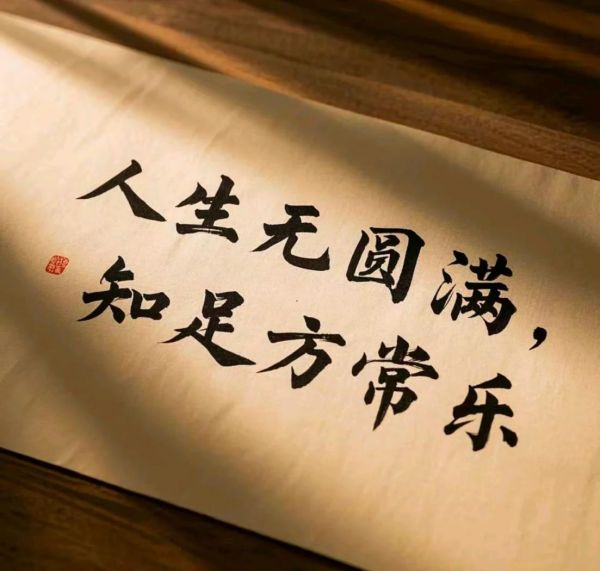 人生无圆满，
知足方常乐